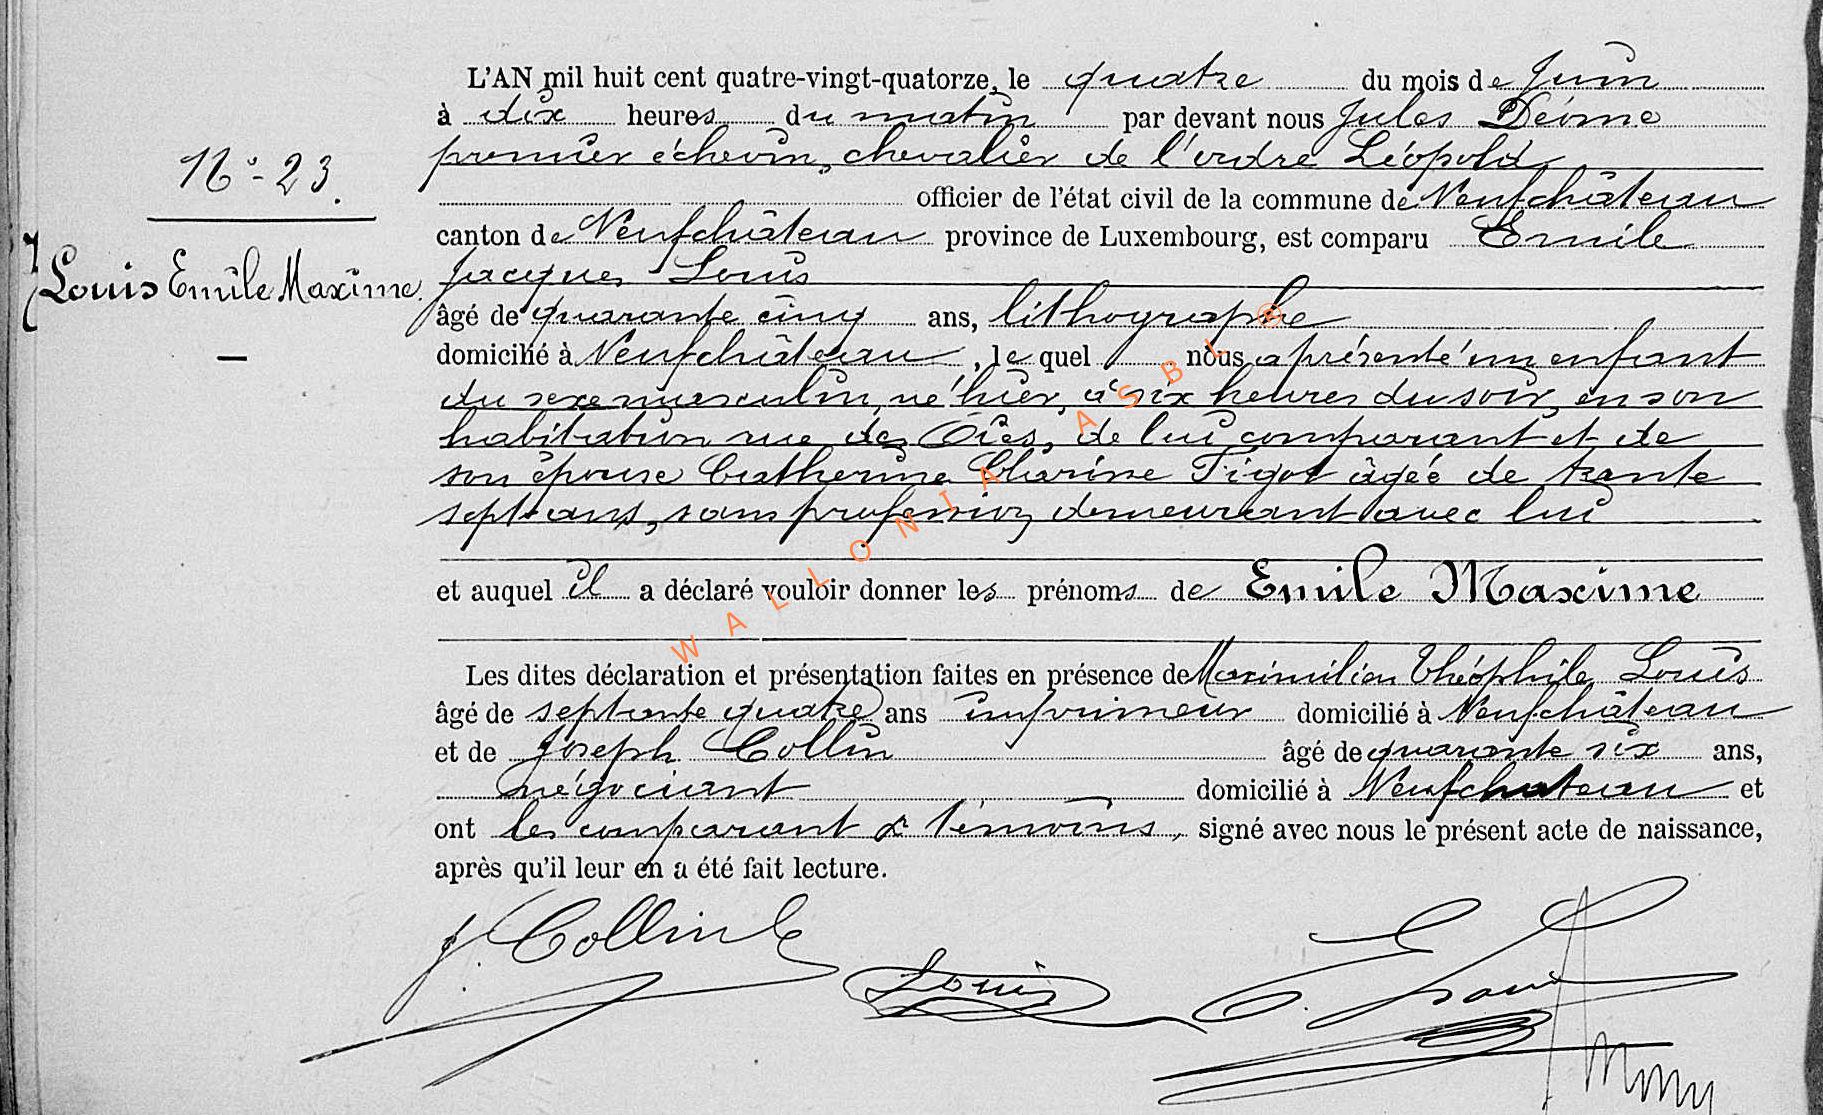 L'AN mil huit cent quatre-vingt-quatorze, le quatre du mois de Juin
à dix heures du matin par devant nous Jules
premier échevin, chevalier de l'ordre Léopold,
officier de l'état civil de la commune de Neufchâteau
N° 23.
canton de Neufchâteau province de Luxembourg, est comparu Emile
Jacques Louis
Louis Emile Maxime.
âgé de quarante cinq ans, lithographe
domicilié à Neufchâteau, lequel nous a présenté un enfant
du sexe masculin, né hier, à six heures du soir, en son
habitation rue des Oies, de lui comparant et de
son épouse Catherine Clarisse Tigot âgée de trente
sept ans, sans profession, demeurant avec lui
et auquel il a déclaré vouloir donner les prénoms de Emile Maxime
Les dites déclaration et présentation faites en présence de Maximilien Théophile Louis
âgé de septante quatre ans imprimeur domicilié à Neufchâteau
et de Joseph Collin âgé de quarante six ans,
négociant domicilié à Neufchateau et
ont les comparant & témoins, signé avec nous le présent acte de naissance,
après qu'il leur en a été fait lecture.
J. Collin
Louis
E. Louis
WALLONIA ASBL ©